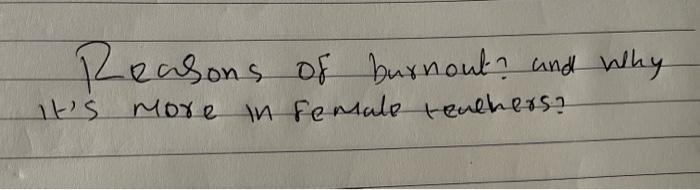 Reasons of burnout? and why
it's more in female teachers?